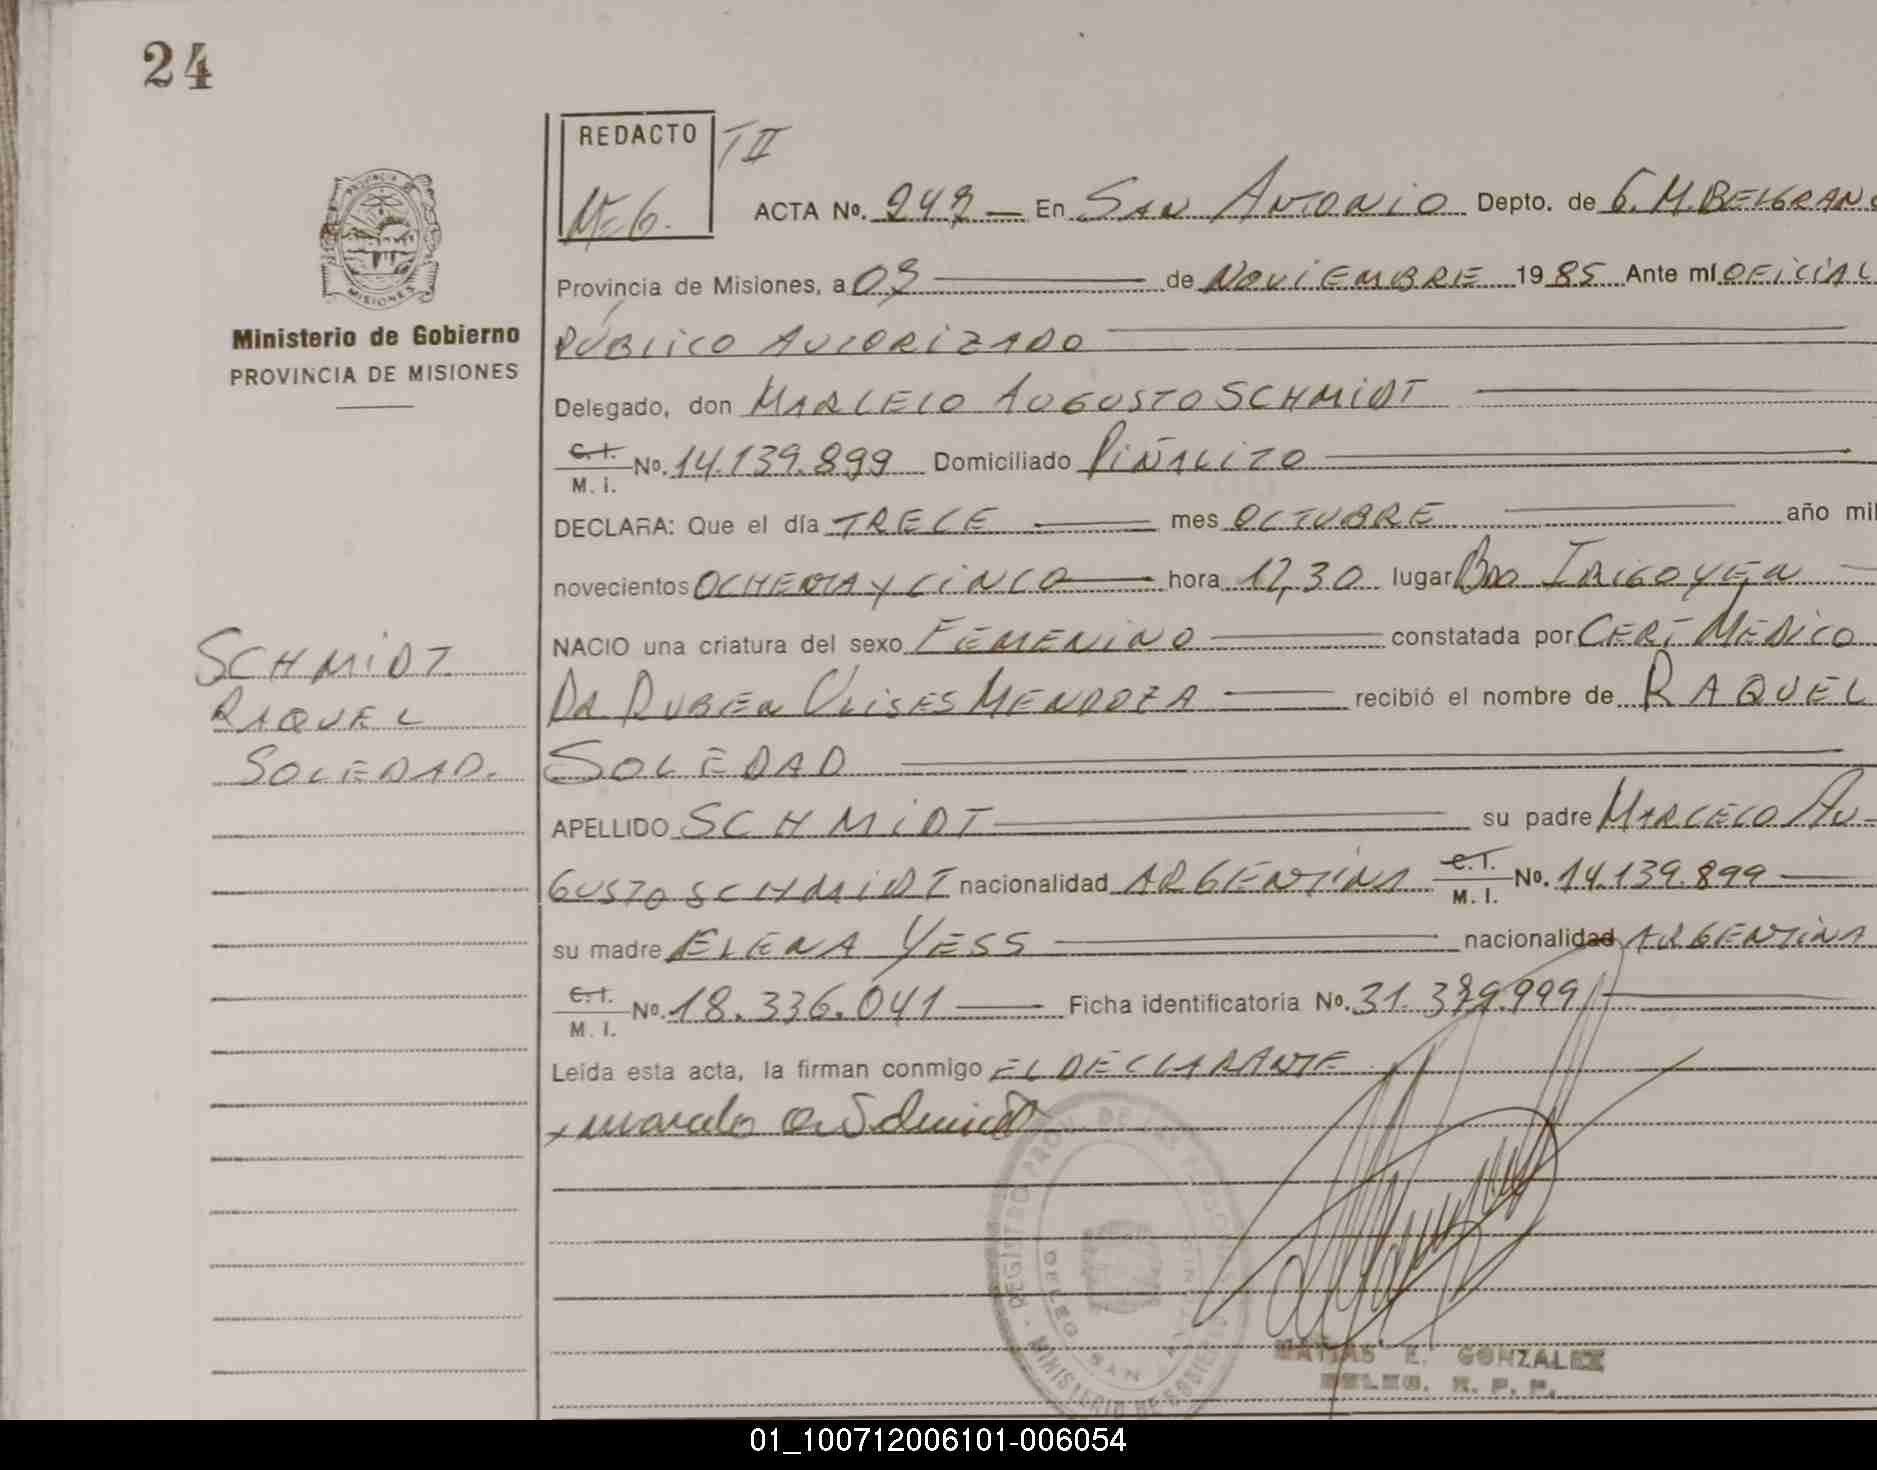 24
REDACTO T II
M=G.
PROVINCIA DE MISIONES
Ministerio de Gobierno
PROVINCIA DE MISIONES
ACTA No. 242 — En SAN ANTONIO Depto. de G. M. BELGRANO
Provincia de Misiones, a 03 de NOVIEMBRE 1985 Ante mí OFICIAL
PÚBLICO AUTORIZADO
Delegado, don MARCELO AUGUSTO SCHMIDT
C.I. M. I. No. 14.139.899 Domiciliado PIÑALITO
DECLARA: Que el día TRECE mes OCTUBRE año mil
novecientos OCHENTA Y CINCO hora 12,30 lugar Bdo IRIGOYEN
NACIO una criatura del sexo FEMENINO constatada por CERT MEDICO
DR RUBEN ULISES MENDOZA recibió el nombre de RAQUEL
SOLEDAD
APELLIDO SCHMIDT su padre MARCELO AU-
GUSTO SCHMIDT nacionalidad ARGENTINA C.I. M. I. No. 14.139.899
su madre ELENA YESS nacionalidad ARGENTINA
C.I. M. I. No. 18.336.041 Ficha identificatoria No. 31.389.999
Leída esta acta, la firman conmigo EL DECLARANTE
x marcelo a. Schmidt
SCHMIDT
RAQUEL
SOLEDAD.
REGISTRO PROV. DE LAS PERSONAS
MINISTERIO DE GOBIERNO
DELEG. SAN
MATIAS E. GONZALEZ
DELEG. R. P. P.
01_100712006101-006054